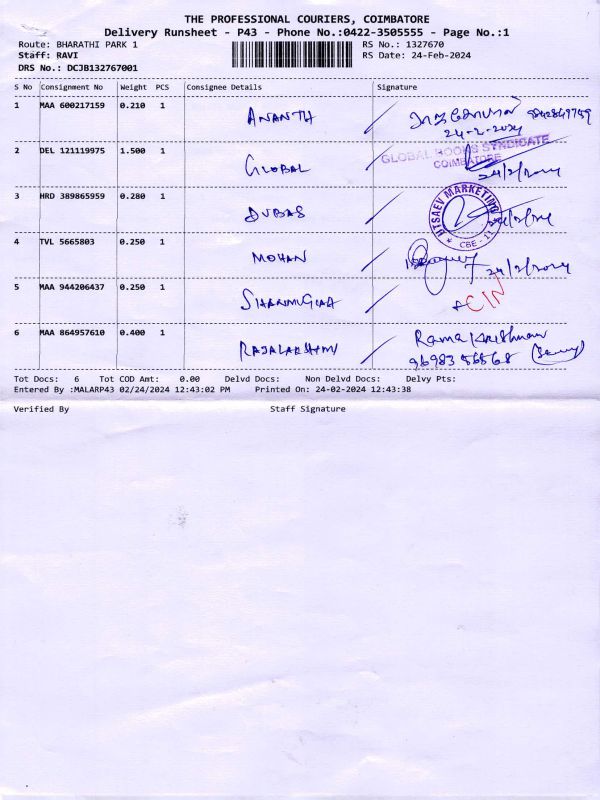 THE PROFESSIONAL COURIERS, COIMBATORE
Delivery Runsheet - P43 - Phone No.:0422-3505555 - Page No.:1
Route: BHARATHI PARK 1 RS No.: 1327670
Staff: RAVI RS Date: 24-Feb-2024
DRS No.: DCJB132767001
S No Consignment No Weight PCS Consignee Details Signature
1 MAA 600217159 0.210 1 ANANTH
24-2-2024
2 DEL 121119975 1.500 1 GLOBAL GLOBAL BOOKS SYNDICATE
COIMBATORE
24/2/2024
3 HRD 389865959 0.280 1 DUBAS
MARKETING
CBE - 11
4 TVL 5665803 0.250 1 MOHAN 24/2/2024
5 MAA 944206437 0.250 1
6 MAA 864957610 0.400 1 RAJALAKSHMI Rama Krishnan
Tot Docs: 6 Tot COD Amt: 0.00 Delvd Docs: Non Delvd Docs: Delvy Pts:
Entered By :MALARP43 02/24/2024 12:43:02 PM Printed On: 24-02-2024 12:43:38
Verified By Staff Signature